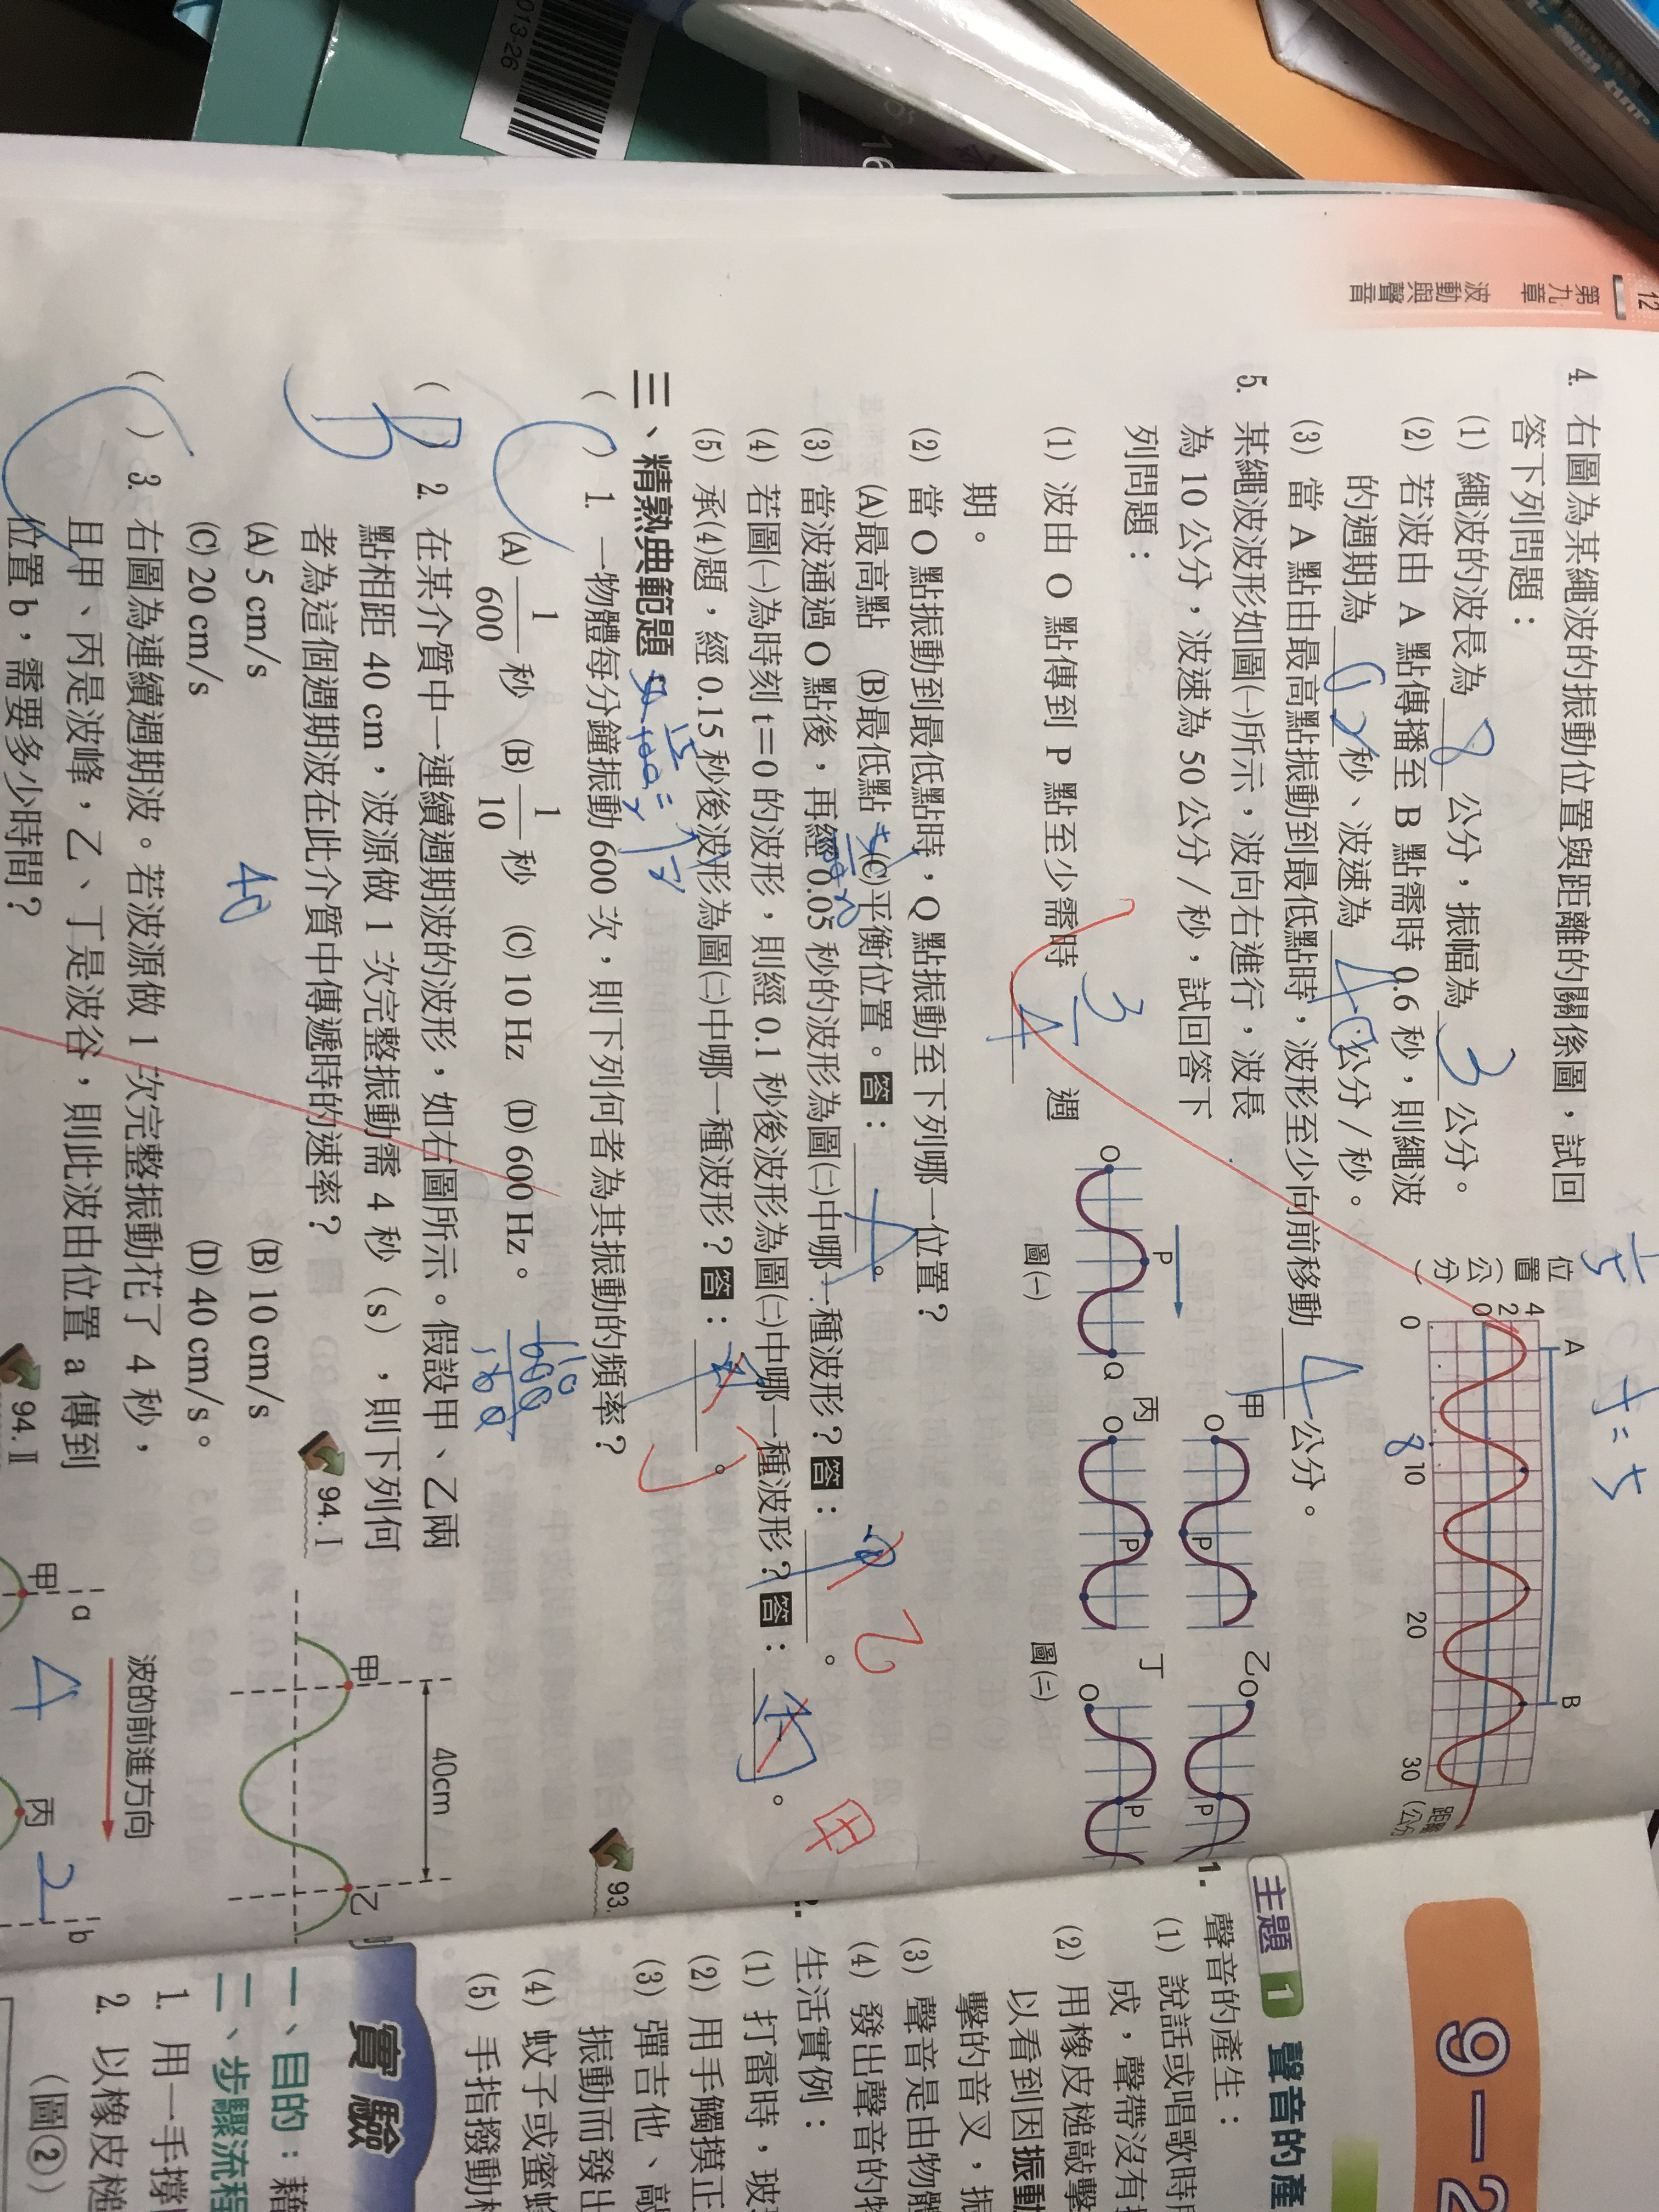 12
第九章 波動與聲音
4. 右圖為某繩波的振動位置與距離的關係圖，試回
答下列問題：
(1) 繩波的波長為 8 公分，振幅為 3 公分。
(2) 若波由 A 點傳播至 B 點需時 0.6 秒，則繩波
的週期為 0.2 秒、波速為 40 公分／秒。
(3) 當 A 點由最高點振動到最低點時，波形至少向前移動 4 公分。
位置（公分）
4
2
0
A
B
0
8
10
20
30
距離
(公分
5. 某繩波波形如圖㈠所示，波向右進行，波長
為 10 公分，波速為 50 公分／秒，試回答下
列問題：
(1) 波由 O 點傳到 P 點至少需時 3/4 週
期。
O
P
Q
圖㈠
甲
O
P
乙
O
P
丙
O
P
丁
O
P
圖㈡
(2) 當 O 點振動到最低點時，Q 點振動至下列哪一位置？
(A)最高點 (B)最低點 (C)平衡位置。答： A 。
(3) 當波通過 O 點後，再經 0.05 秒的波形為圖㈡中哪一種波形？答： 。
乙
(4) 若圖㈠為時刻 t＝0 的波形，則經 0.1 秒後波形為圖㈡中哪一種波形？答： 。
甲
(5) 承(4)題，經 0.15 秒後波形為圖㈡中哪一種波形？答： 。
三、精熟典範題
( C ) 1. 一物體每分鐘振動 600 次，則下列何者為其振動的頻率？
(A) 1/600 秒 (B) 1/10 秒 (C) 10 Hz (D) 600 Hz。
93.
( B ) 2. 在某介質中一連續週期波的波形，如右圖所示。假設甲、乙兩
點相距 40 cm，波源做 1 次完整振動需 4 秒（s），則下列何
者為這個週期波在此介質中傳遞時的速率？
94. I
(A) 5 cm/s (B) 10 cm/s
(C) 20 cm/s (D) 40 cm/s。
40
甲
40cm
乙
( C ) 3. 右圖為連續週期波。若波源做 1 次完整振動花了 4 秒，
且甲、丙是波峰，乙、丁是波谷，則此波由位置 a 傳到
位置 b，需要多少時間？
94. II
波的前進方向
a
甲
4
丙
2
b
9－2
主題 1 聲音的產
1. 聲音的產生：
(1) 說話或唱歌時
成，聲帶沒有
(2) 用橡皮槌敲擊
以看到因振動
擊的音叉，振
(3) 聲音是由物體
(4) 發出聲音的物
生活實例：
(1) 打雷時，玻
(2) 用手觸摸正
(3) 彈吉他、敲
振動而發出
(4) 蚊子或蜜蜂
(5) 手指撥動
實驗
一、目的：藉
二、步驟流程
1. 用一手撐
2. 以橡皮槌
（圖②）
013-26